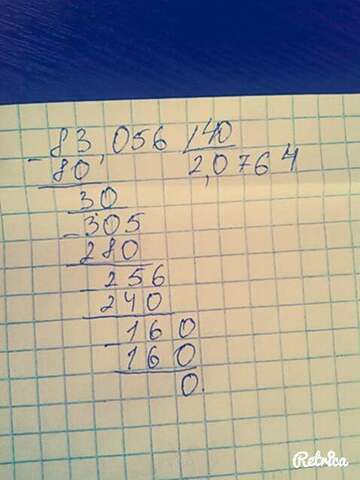 83,056 40
80 2,0764
30
305
280
256
240
160
160
0.
Retrica